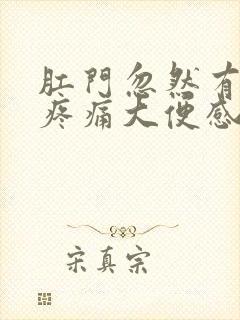 肛門忽然有
疼痛大便感
宋真宗